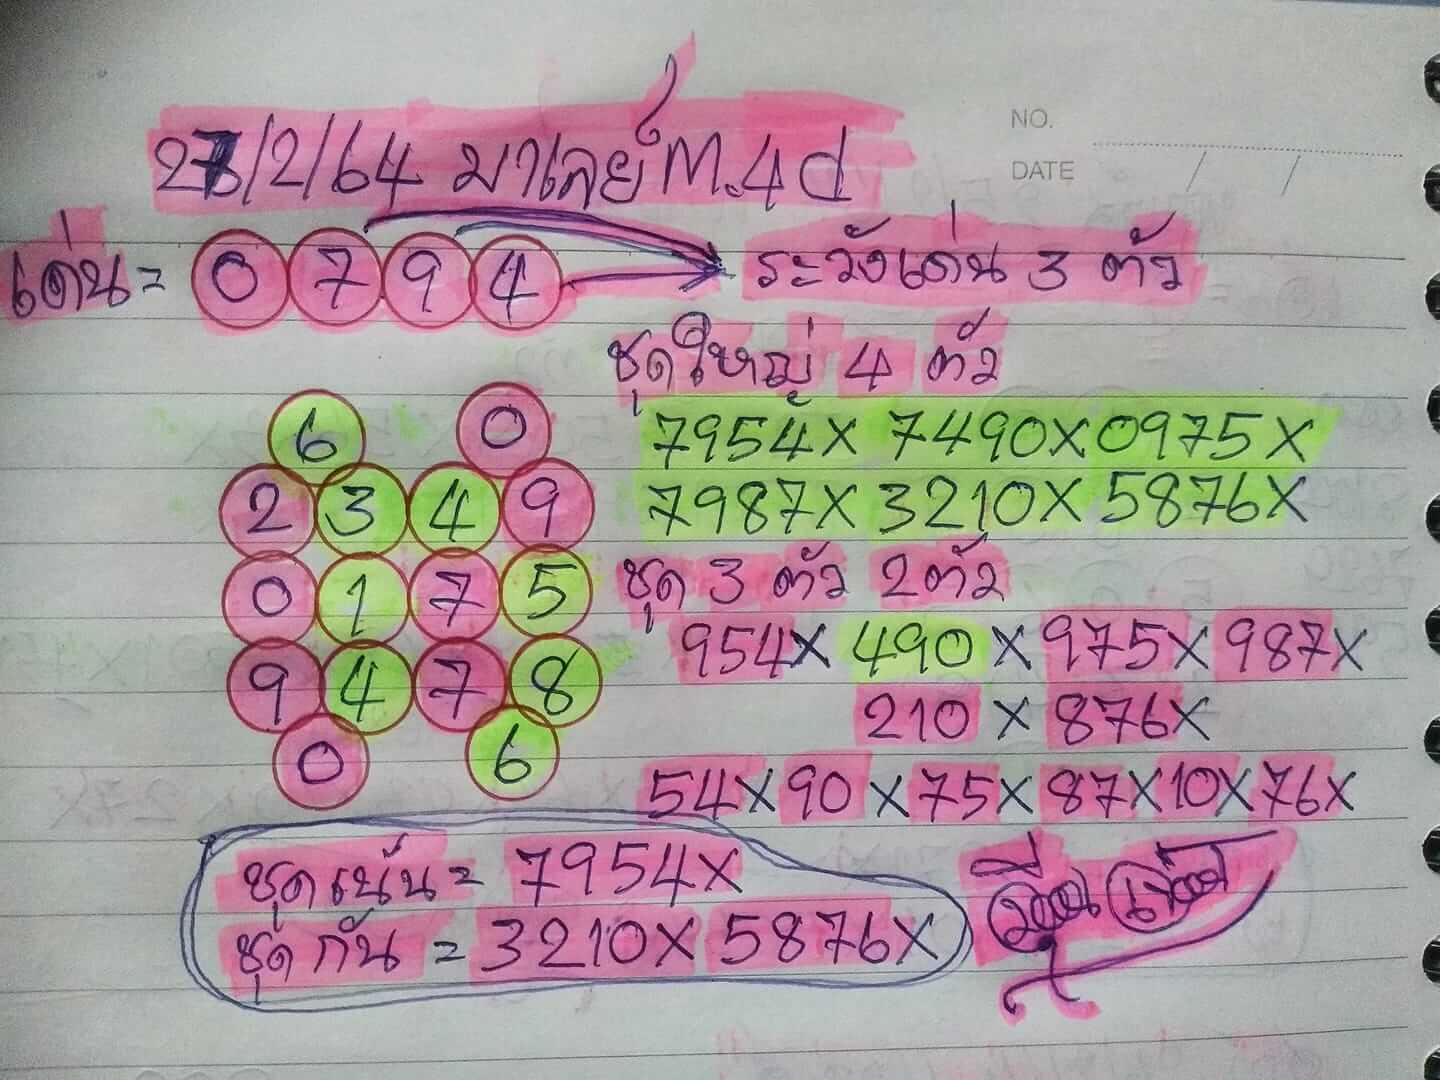 NO.
DATE / /
27/2/64 มาเลย์ M.4d
เด่น= 0 7 9 4 ระวังเด่น 3 ตัว
ชุดใหญ่ 4 ตัว
7954X 7490X 0975X
7987X 3210X 5876X
6 0
2 3 4 9
0 1 7 5
9 4 7 8
0 6
ชุด 3 ตัว 2ตัว
954X 490X 975X 987X
210X 876X
54X 90X 75X 87X 10X 76X
ชุดเน้น= 7954X
ชุดกัน = 3210X 5876X